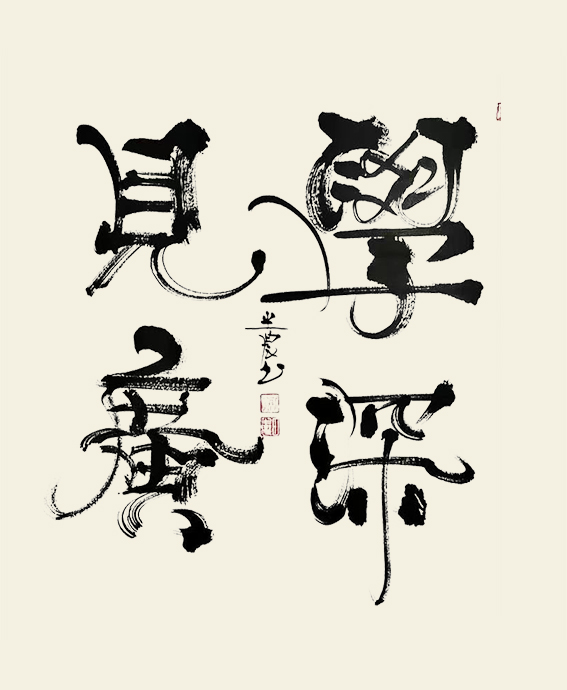 學深
見廣